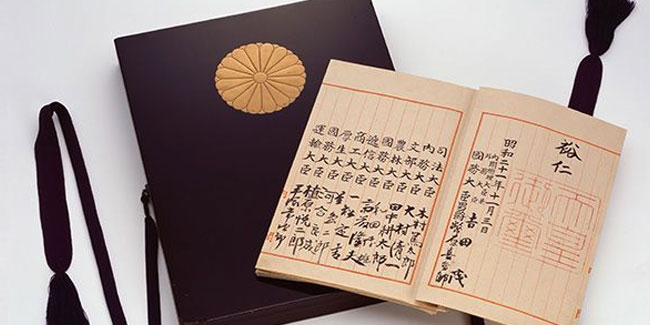 裕仁
天皇
御璽
昭和二十一年十一月三日
内閣總理大臣兼
外務大臣 吉田茂
國務大臣 男爵 幣原喜重郎
司法大臣 木村篤太郎
内務大臣 大村清一
文部大臣 田中耕太郎
農林大臣
國務大臣 斎藤隆夫
遞信大臣 一松定吉
商工大臣
厚生大臣 河合良成
國務大臣 植原悦二郎
運輸大臣 平塚常次郎